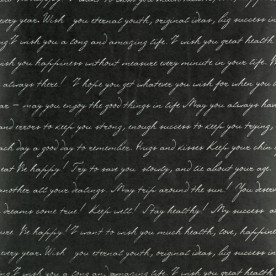 every year. Wish you eternal youth, original ideas, big success in
ng I wish you a long and amazing life. I wish you great health
ish you happiness without measure every minute in your life. W
always there! I hope you get whatever you wish for when you
ar – may you enjoy the good things in life May you always hav
and errors to keep you strong, enough success to keep you trying
ach day a good day to remember. Hugs and kisses Keep your chin
reat Be happy! Try to save you slowly, and lie about your age.
nother all your dealings. May trip around the sun! You deserv
dreams come true! Keep well! Stay healthy! My success a
ure. Be happy! I want to wish you much health, love, happine
every year. Wish you eternal youth, original ideas, big success
ng I wish you a long and amazing life. I wish you great